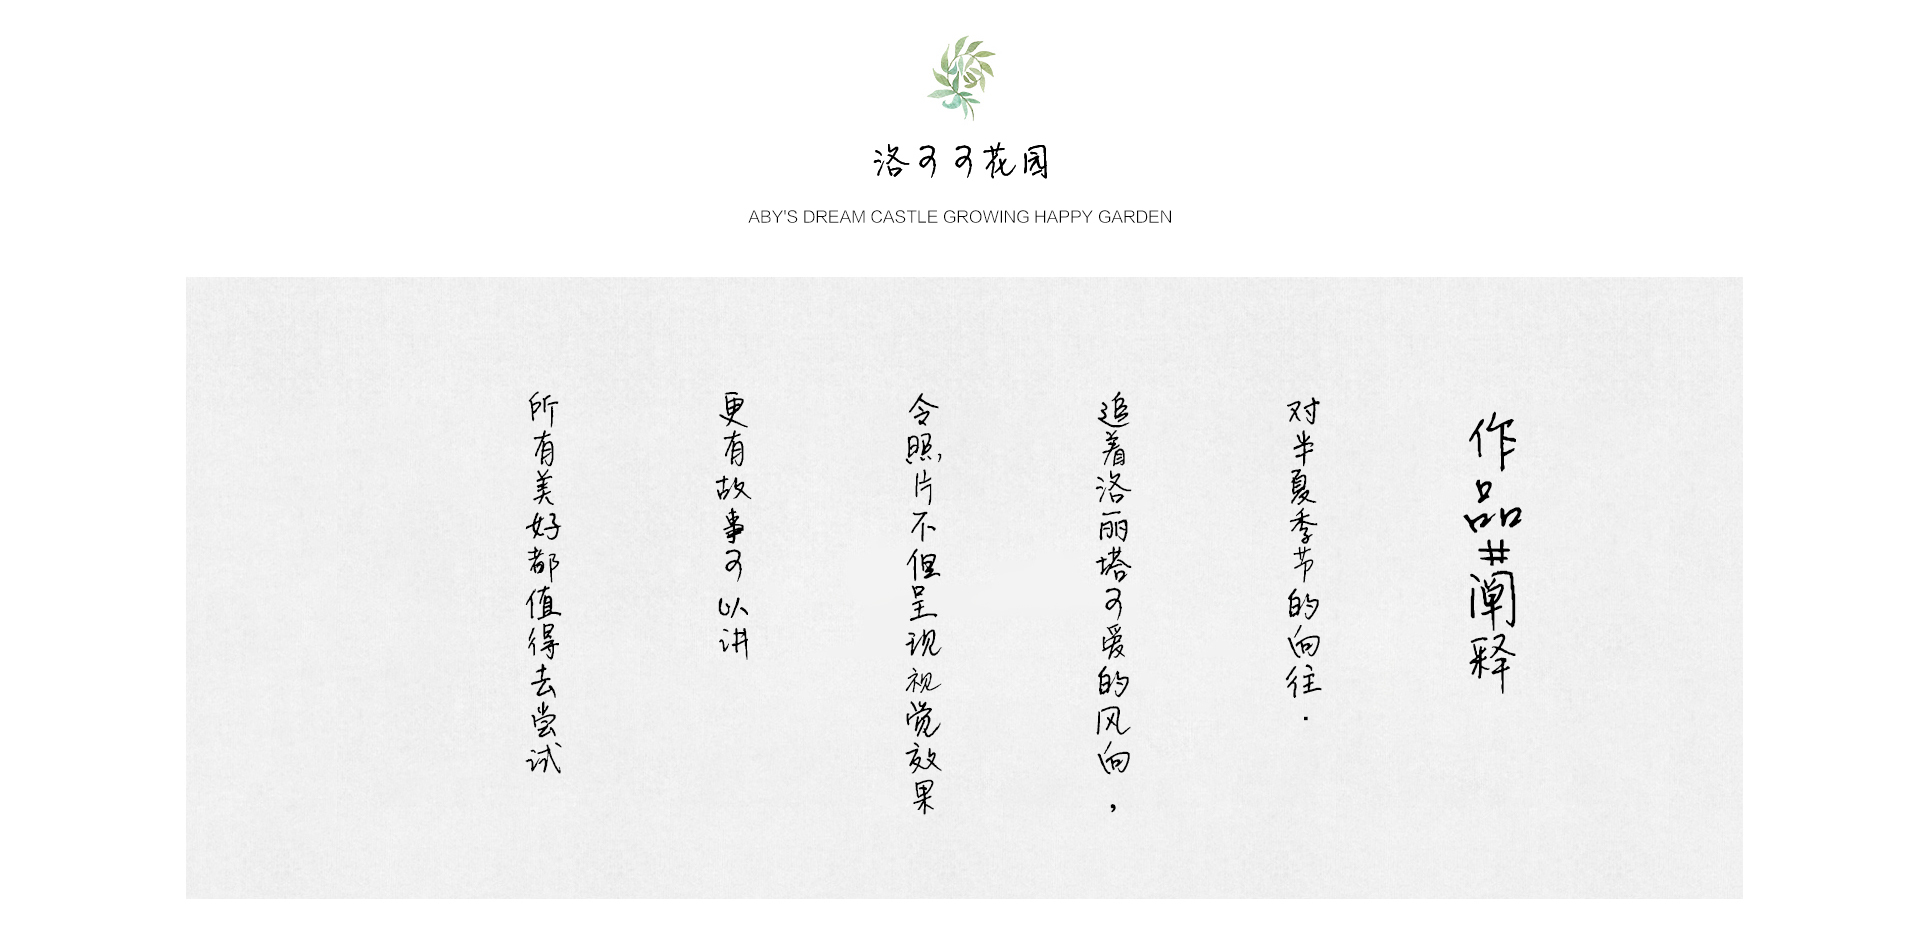 洛可可花园
ABY'S DREAM CASTLE GROWING HAPPY GARDEN
作品#阐释
对半夏季节的向往.
追着洛丽塔可爱的风向,
令照片不但呈现视觉效果
更有故事可以讲
所有美好都值得去尝试